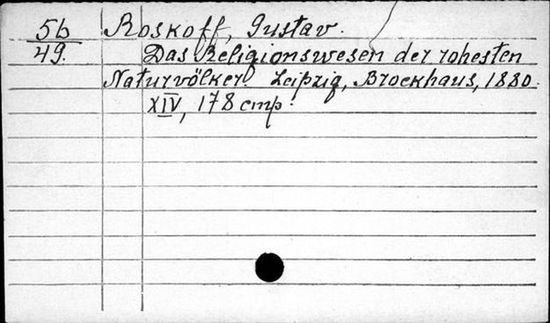 5b Roskoff, Gustav.
49. Das Religionswesen der rohesten
Naturvölker. Leipzig, Brockhaus, 1880.
XIV, 178 cmp.